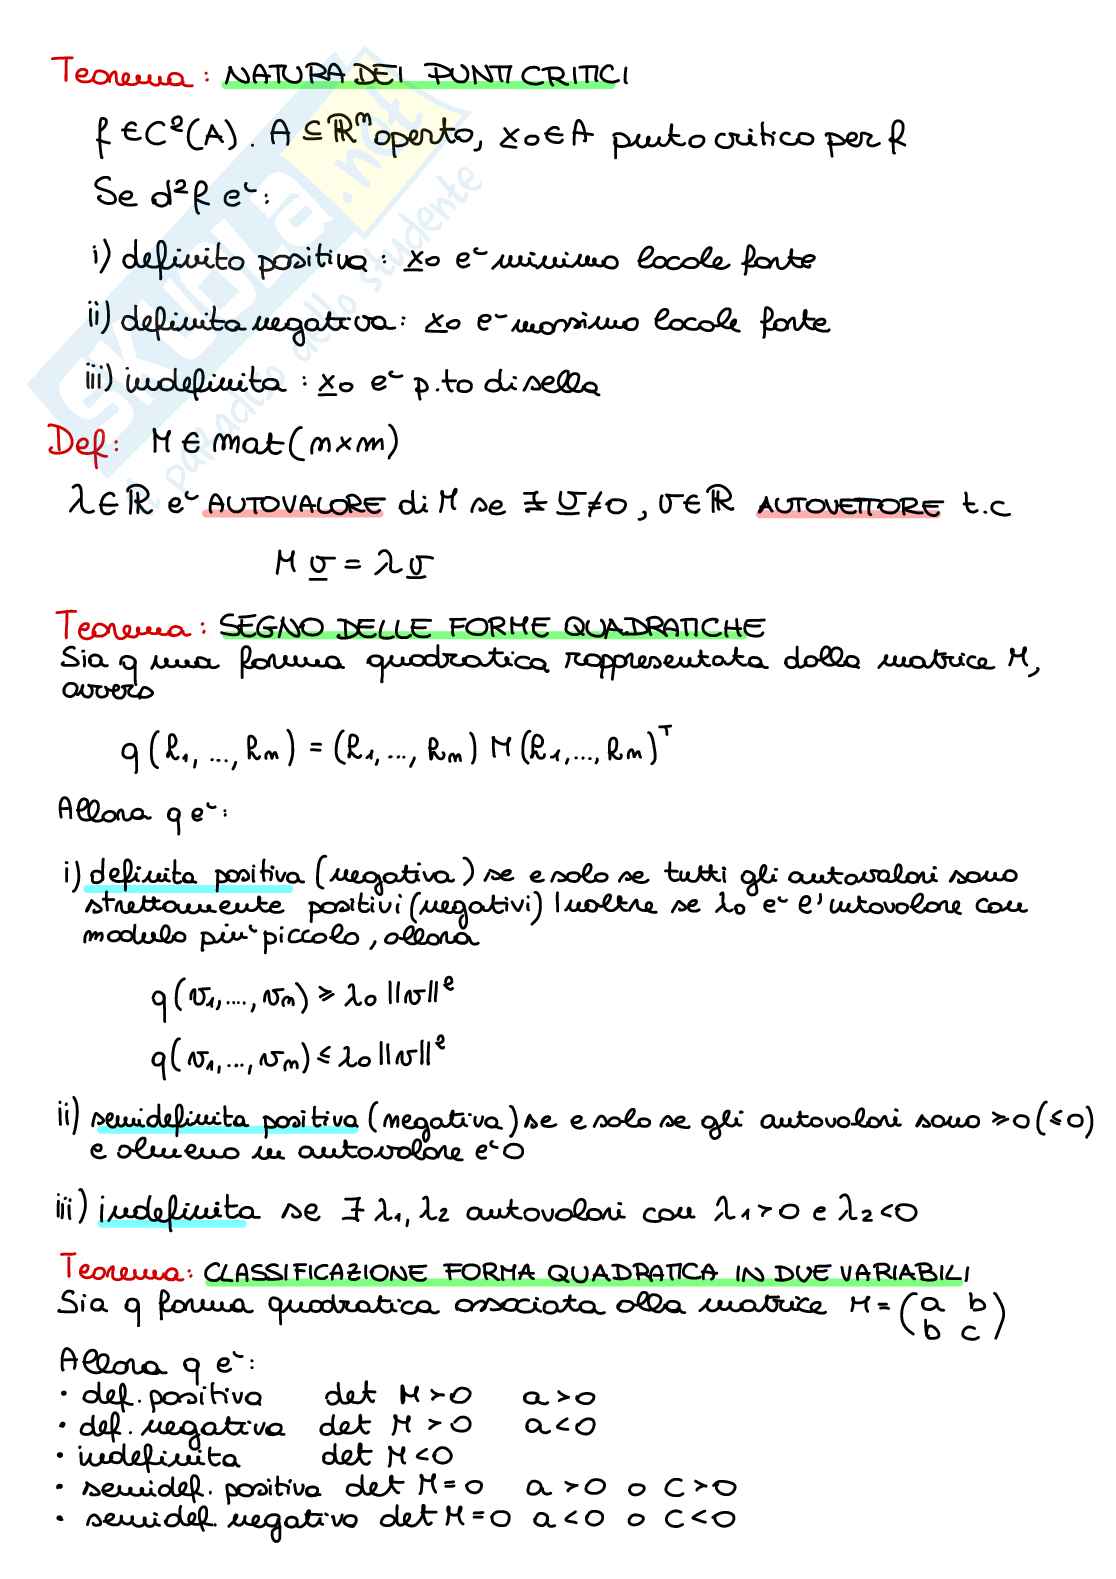 Teorema: NATURA DEI PUNTI CRITICI
f ∈ C²(A). A ⊆ ℝⁿ aperto, x₀ ∈ A punto critico per f
Se d²f è:
i) definito positiva: x₀ è minimo locale forte
ii) definita negativa: x₀ è massimo locale forte
iii) indefinita: x₀ è p.to di sella
Def: M ∈ mat(n×n)
λ ∈ ℝ è AUTOVALORE di M se ∃ v ≠ 0, v ∈ ℝ AUTOVETTORE t.c
M v = λ v
Teorema: SEGNO DELLE FORME QUADRATICHE
Sia q una forma quadratica rappresentata dalla matrice M,
ovvero
q(h₁, ..., hₙ) = (h₁, ..., hₙ) M (h₁, ..., hₙ)ᵀ
Allora q è:
i) definita positiva (negativa) se e solo se tutti gli autovalori sono
strettamente positivi (negativi) Inoltre se λ₀ è l'autovalore con
modulo piu' piccolo, allora
q(v₁, ...., vₙ) ≥ λ₀ ||v||²
q(v₁, ..., vₙ) ≤ λ₀ ||v||²
ii) semidefinita positiva (negativa) se e solo se gli autovalori sono ≥0 (≤0)
e almeno un autovalore è 0
iii) indefinita se ∃ λ₁, λ₂ autovalori con λ₁>0 e λ₂<0
Teorema: CLASSIFICAZIONE FORMA QUADRATICA IN DUE VARIABILI
Sia q forma quadratica associata alla matrice M = (a b
b c)
Allora q è:
• def. positiva det M > 0 a > 0
• def. negativa det M > 0 a < 0
• indefinita det M < 0
• semidef. positiva det M = 0 a > 0 o c > 0
• semidef. negativo det M = 0 a < 0 o c < 0
SKUOLA.net
il paradiso dello studente